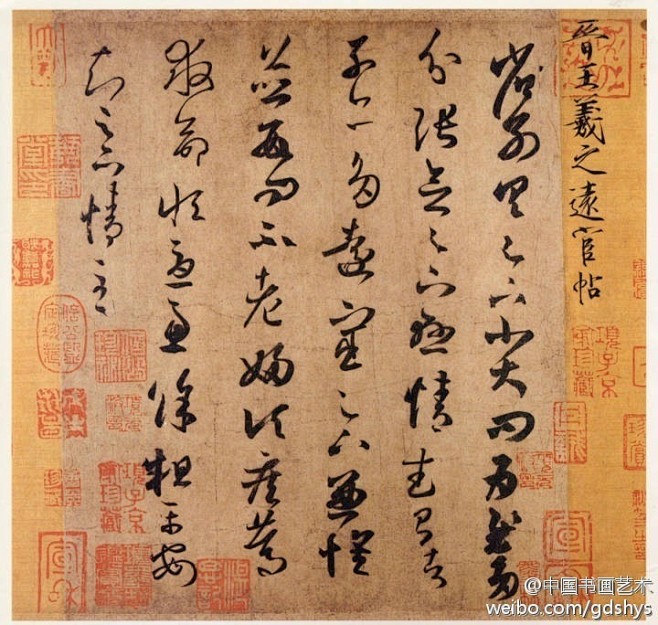 晉王羲之遠宦帖
省別具足下小大問為慰多
分張念足下懸情武昌諸
子亦多遠宦足下兼懷
並數問不老婦頃疾篤
救命恆憂慮餘粗平安
知足下情至
項子京家珍藏
@中国书画艺术
weibo.com/gdshys